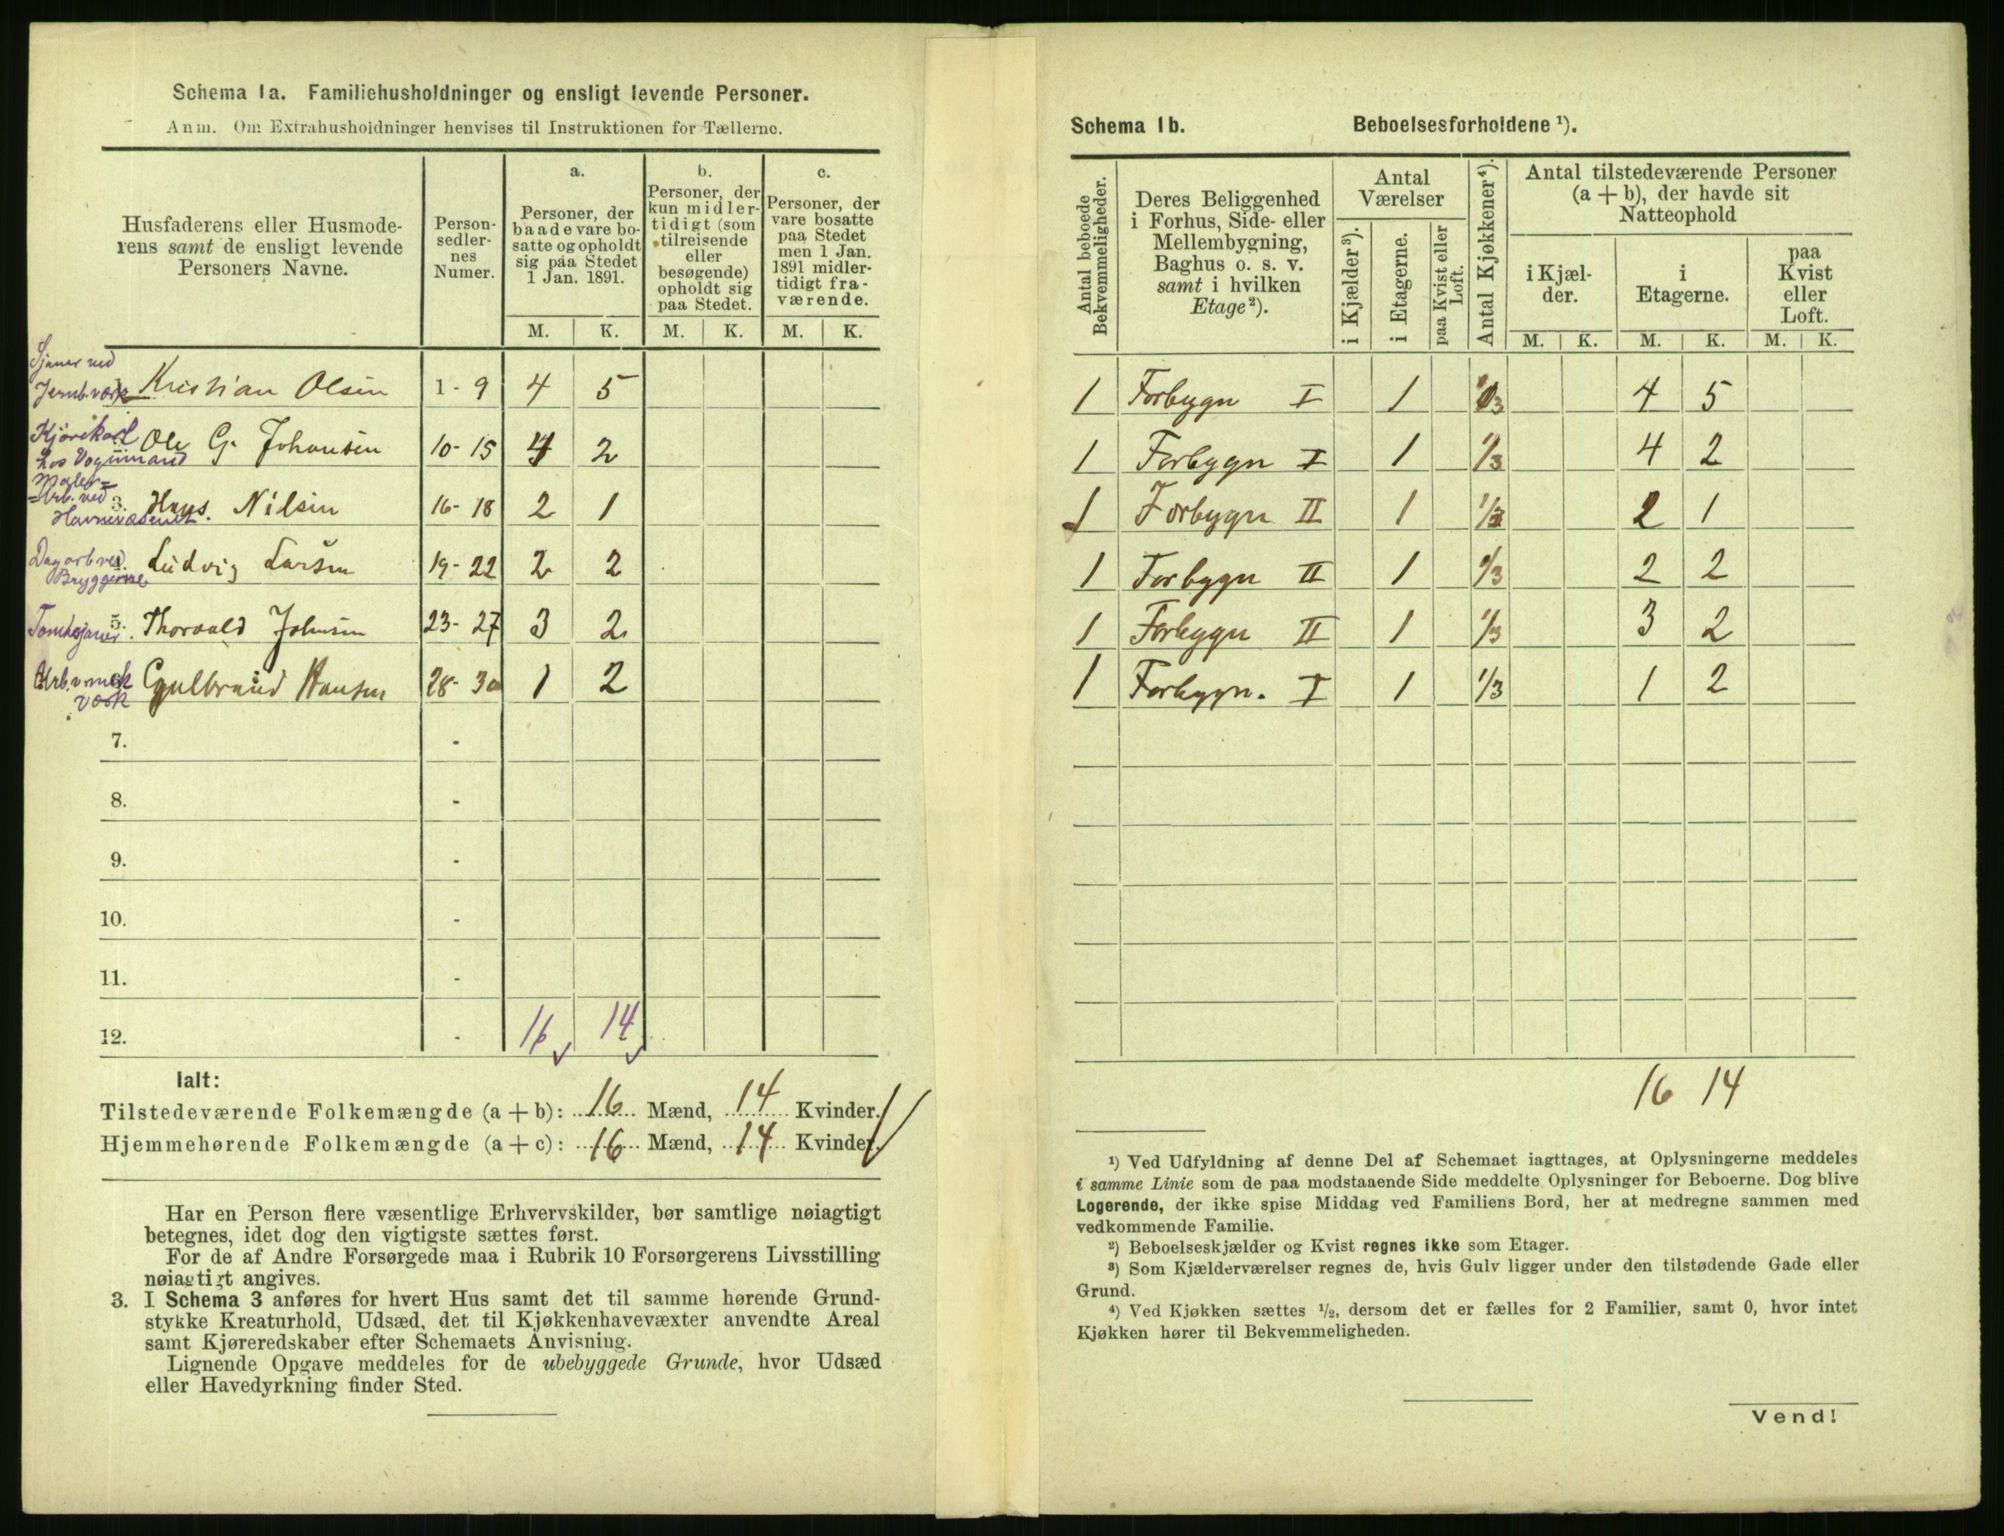 Schema 1a. Familiehusholdninger og ensligt levende Personer.
Anm. Om Extrahusholdninger henvises til Instruktionen for Tællerne.
Husfaderens eller Husmode-
rens samt de ensligt levende
Personers Navne.
Person-
sedler-
nes
Numer.
a.
Personer, der
baade vare bo-
satte og opholdt
sig paa Stedet
1 Jan. 1891.
b.
Personer, der
kun midler-
tidigt (som
tilreisende
eller
besøgende)
opholdt sig
paa Stedet.
c.
Personer, der
vare bosatte
paa Stedet
men 1 Jan.
1891 midler-
tidigt fra-
værende.
M. K. M. K. M. K.
Sjauer ved
Jernb.værk Kristian Olsen 1 - 9 4 5
Kjørekarl
hos Vognmand Ole G. Johansen 10 - 15 4 2
Arb. ved
Havnevæsenet. 3. Hans Nilsen 16 - 18 2 1
Dagarb ved
Bryggerne Ludvig Larsen 19 - 22 2 2
Tomtesjauer 5. Thorvald Johnsen 23 - 27 3 2
Arb. v mek
Værk Gulbrand Hansen 28 - 30 1 2
7. -
8. -
9. -
10. -
11. -
12. - 16 14
Ialt:
Tilstedeværende Folkemængde (a + b): 16 Mænd, 14 Kvinder.
Hjemmehørende Folkemængde (a + c): 16 Mænd, 14 Kvinder.
Har en Person flere væsentlige Erhvervskilder, bør samtlige nøiagtigt
betegnes, idet dog den vigtigste sættes først.
For de af Andre Forsørgede maa i Rubrik 10 Forsørgerens Livsstilling
nøiagtigt angives.
3. I Schema 3 anføres for hvert Hus samt det til samme hørende Grund-
stykke Kreaturhold, Udsæd, det til Kjøkkenhavevæxter anvendte Areal
samt Kjøreredskaber efter Schemaets Anvisning.
Lignende Opgave meddeles for de ubebyggede Grunde, hvor Udsæd
eller Havedyrkning finder Sted.
Schema 1b. Beboelsesforholdene ¹).
Antal beboede
Bekvemmeligheder.
Deres Beliggenhed
i Forhus, Side- eller
Mellembygning,
Baghus o. s. v.
samt i hvilken
Etage²).
Antal
Værelser
i Kjælder³).
i Etagerne.
paa Kvist eller
Loft.
Antal Kjøkkener⁴).
Antal tilstedeværende Personer
(a + b), der havde sit
Natteophold
i Kjæl-
der.
i
Etagerne.
paa
Kvist
eller
Loft.
M. K. M. K. M. K.
1 Forbygn I 1 1/3 4 5
1 Forbygn I 1 1/3 4 2
1 Forbygn II 1 1/3 2 1
1 Forbygn II 1 1/3 2 2
1 Forbygn II 1 1/3 3 2
1 Forbygn. I 1 1/3 1 2
16 14
¹) Ved Udfyldning af denne Del af Schemaet iagttages, at Oplysningerne meddeles
i samme Linie som de paa modstaaende Side meddelte Oplysninger for Beboerne. Dog blive
Logerende, der ikke spise Middag ved Familiens Bord, her at medregne sammen med
vedkommende Familie.
²) Beboelseskjælder og Kvist regnes ikke som Etager.
³) Som Kjælderværelser regnes de, hvis Gulv ligger under den tilstødende Gade eller
Grund.
⁴) Ved Kjøkken sættes ½, dersom det er fælles for 2 Familier, samt 0, hvor intet
Kjøkken hører til Bekvemmeligheden.
Vend!